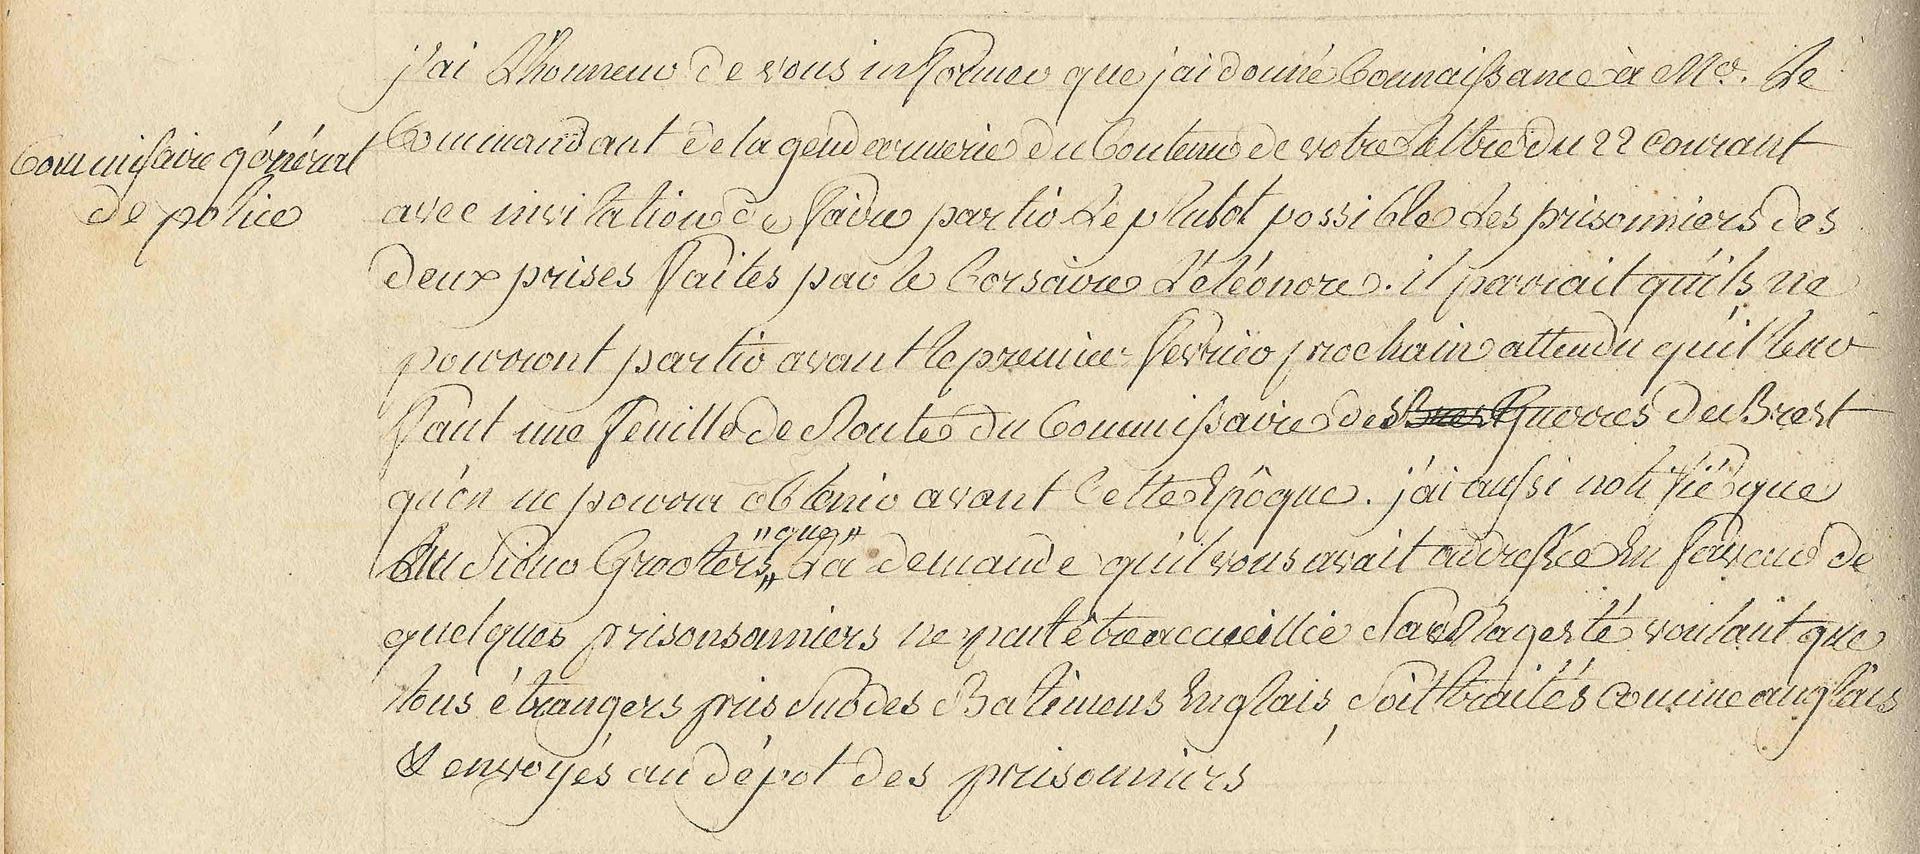 Commissaire général
de police
j'ai L'honneur de vous informer que j'ai donné Connaissance à Mr. Le
Commandant de la gendarmerie du Contenu de votre Lettre du 22 courant
avec invitation de faire partir Le plutot possible Les prisonniers des
deux prises faites par le Corsaire L'eléonore. il parrait qu'ils ne
pourront partir avant le premier fevrier prochain attendu qu'il leur
faut une feuille de Route du Commissaire des Guerres de Brest
qu'on ne pourra obtenir avant Cette Epôque. j'ai aussi notifié que
"que"
Au Sieur Grooters, La demande qu'il vous avait adressée En faveur de
quelques prisonsonniers ne peut être accueillie Sa Magesté voulant que
tous étrangers pris Sur des Batimens Englais, Soit traités comme anglais
& envoyés au dépot des prisonniers